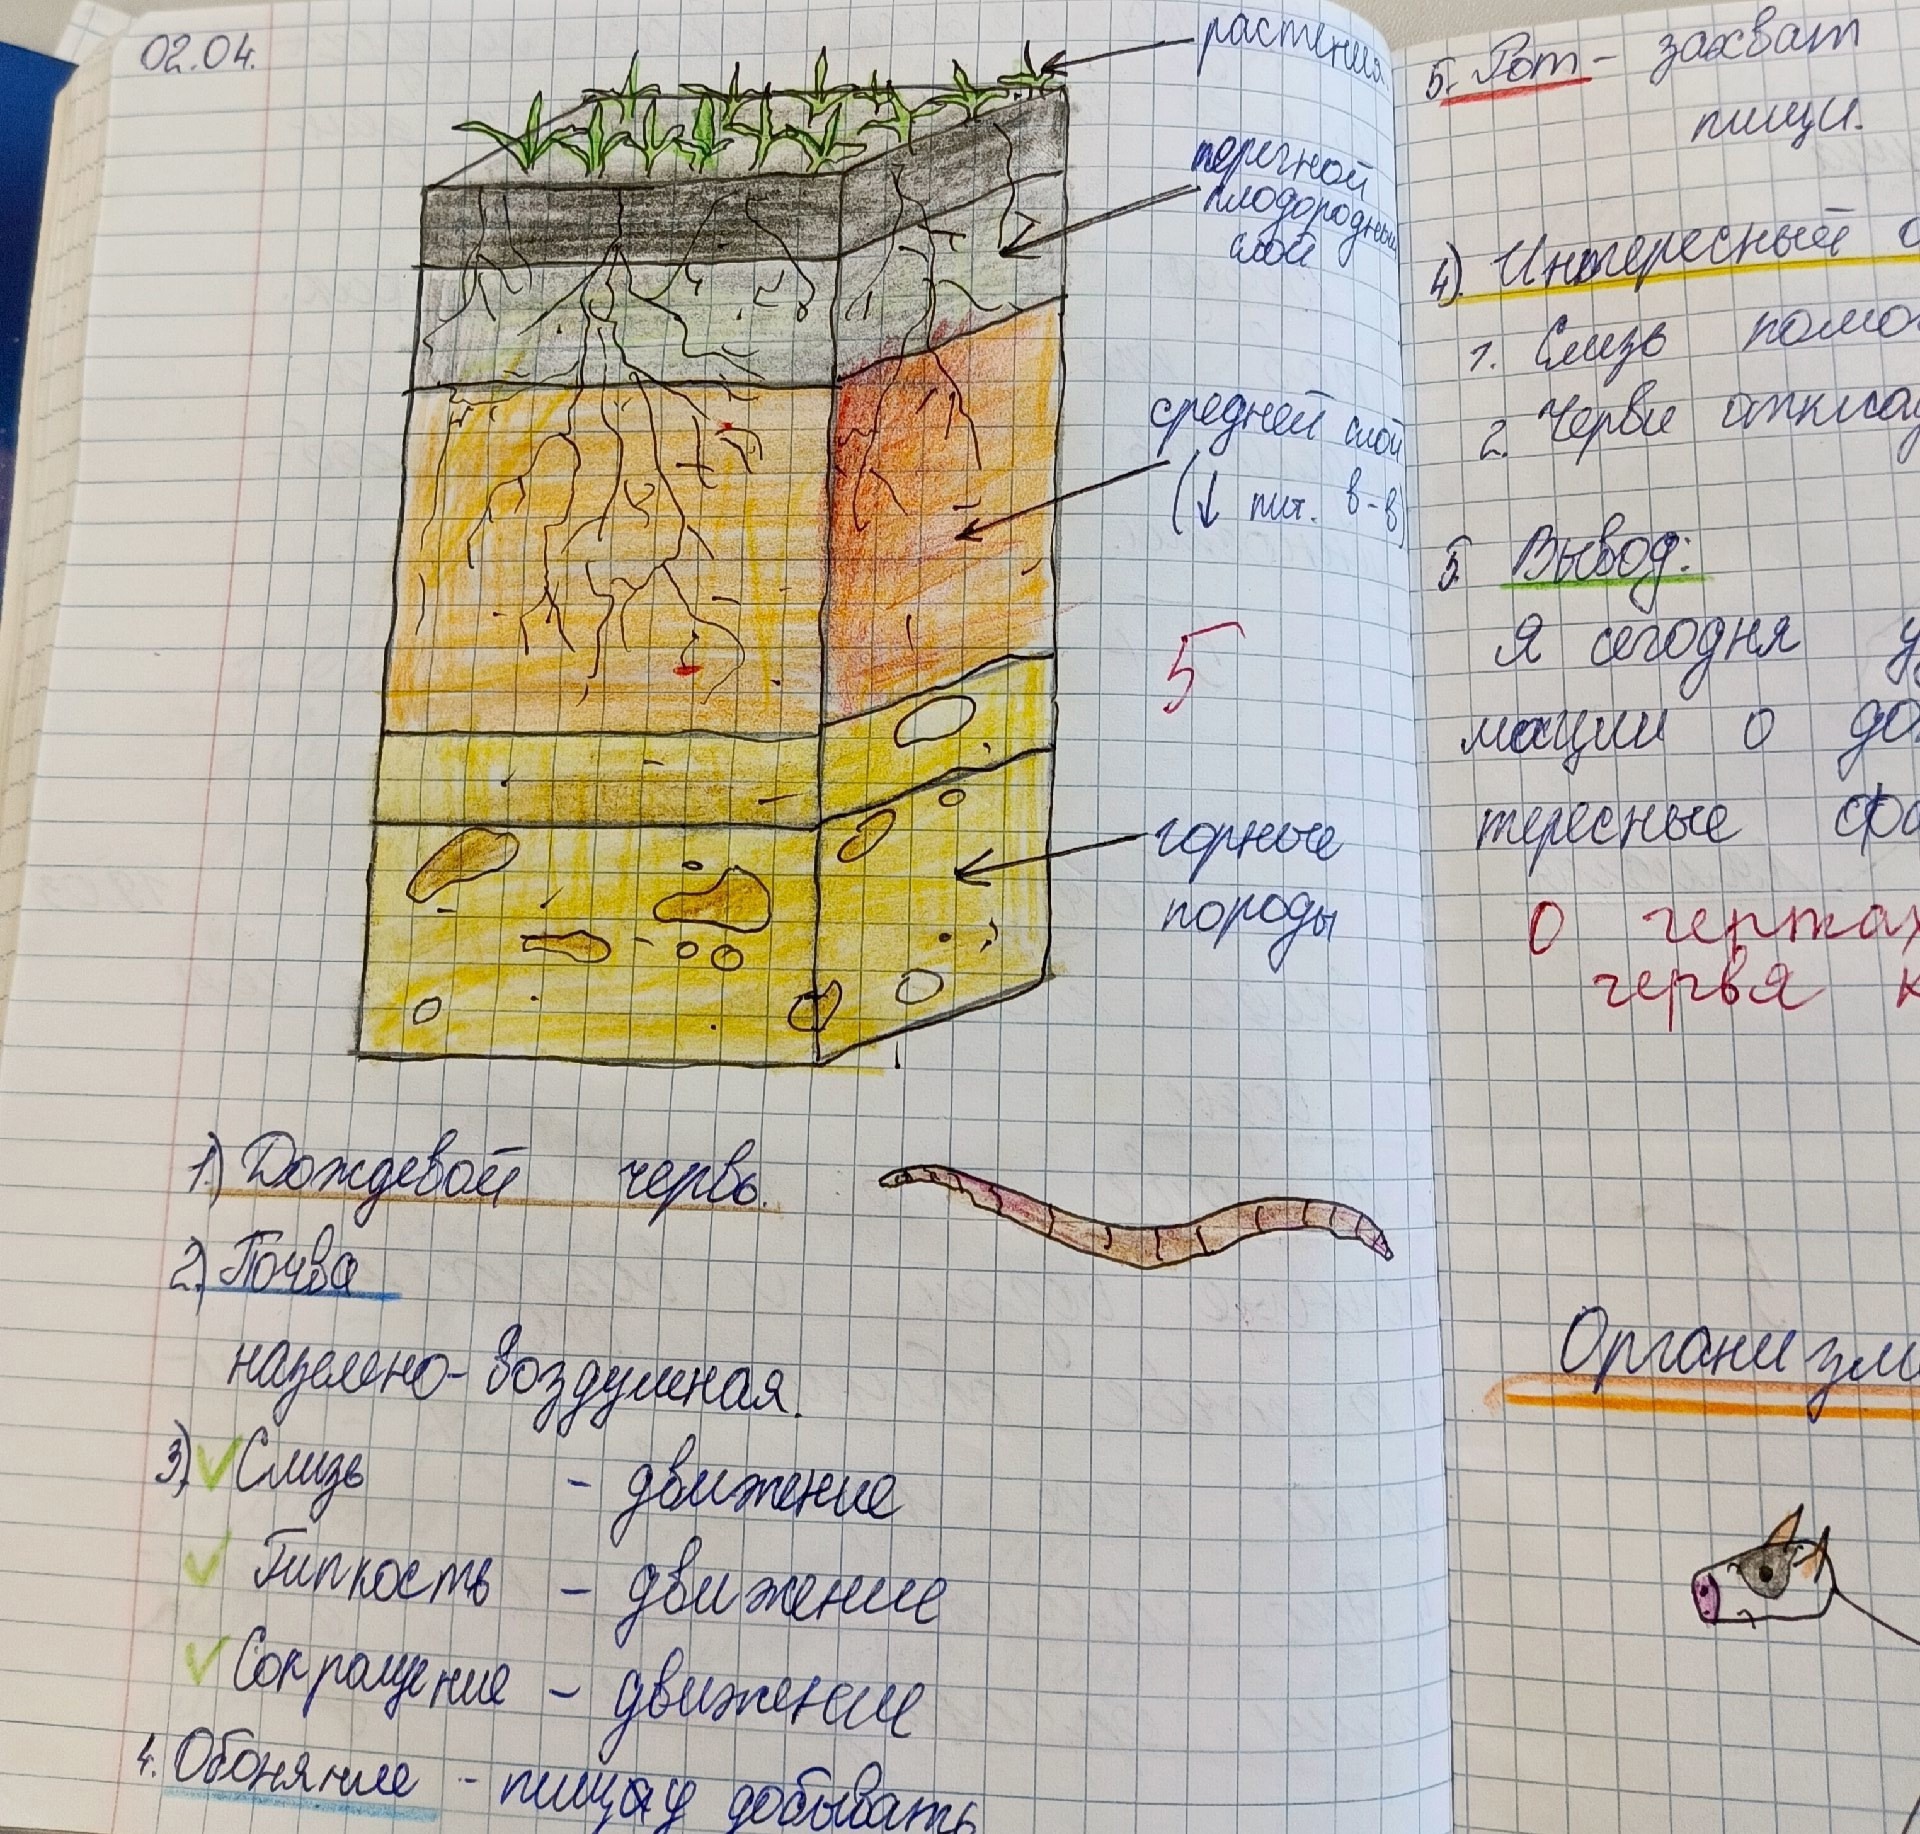 02.04.
растения
перегной
плодородный
слой
средней слой
(↓ пит. в-в)
5
горные
породы
1.) Дождевой червь.
2.) Почва
наземно-воздушная.
3) ✓ Слизь - движение
✓ Гипкость - движение
✓ Сокращение - движение
4. Обоняние - пищу добывать
5. Рот - захват
пищи.
4). Интересный
1. Слизь помо
2. Черви
5. Вывод:
Я сегодня у
мации о до
тересные фа
о чертах
червя к
Организм